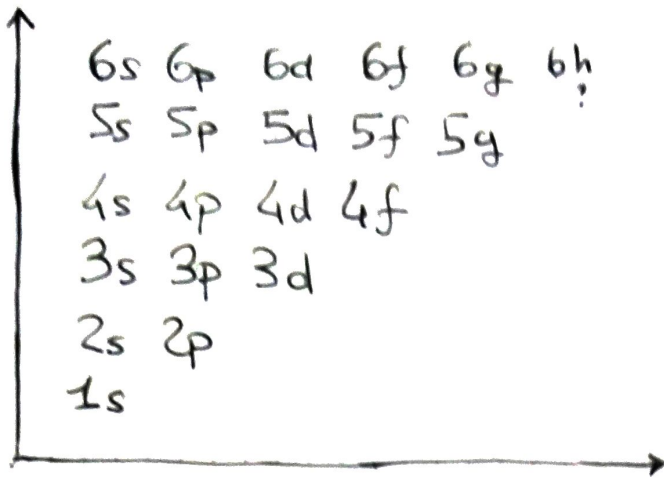 6s 6p 6d 6f 6g 6h
?
5s 5p 5d 5f 5g
4s 4p 4d 4f
3s 3p 3d
2s 2p
1s